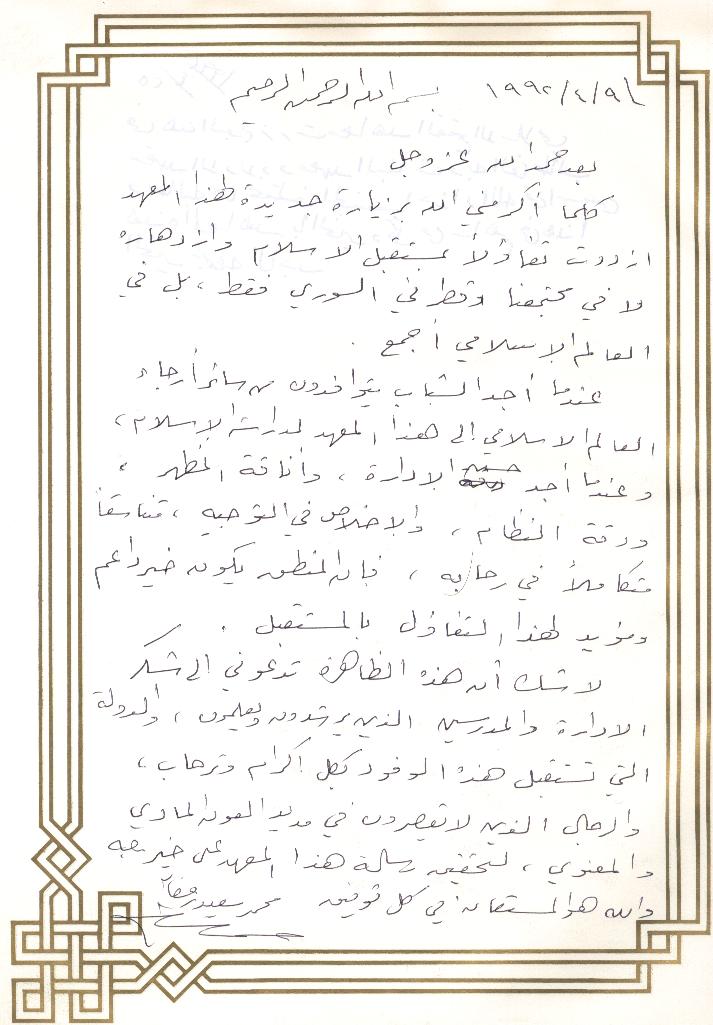 بسم الله الرحمن الرحيم ١٩٩٢/٤/٩
بعد حمد الله عز وجل
كلما أكرمني الله بزيارة جديدة لهذا المعهد
ازددت تفاؤلاً بمستقبل الاسلام وازدهاره
لا في مجتمعنا وقطرنا السوري فقط، بل في
العالم الإسلامي أجمع.
عندما أجد الشباب يتوافدون من سائر أرجاء
العالم الاسلامي إلى هذا المعهد لدراسة الإسلام،
وعندما أجد حسن الإدارة، وأناقة المظهر،
ودقة النظام، والإخلاص في التوجيه، تناسقاً
متكاملاً في رحابه، فإن المنطق يكون خير داعم
ومؤيد لهذا التفاؤل بالمستقبل.
لا شك أن هذه الظاهرة تدعوني الى شكر
الادارة والمدرسين الذين يرشدون ويعلمون، والدولة
التي تستقبل هذه الوفود بكل إكرام وترحاب،
والرجال الذين لا يقصرون في مديد العون المادي
والمعنوي، لتحقيق رسالة هذا المعهد على خير وجه
والله هو المستعان في كل توفيق محمد سعيد رمضان